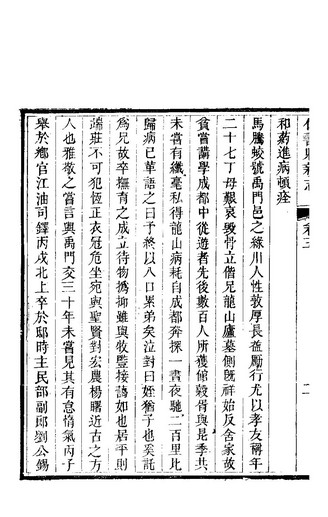 和药進病頓痊
馬騰蛟號禹門邑之綠川人性敦厚長益勵行尤以孝友稱年
二十七丁母艱哀毀骨立偕兄龍山廬墓側既祥始反舍家故
貧嘗講學成都中從遊者先後數百人所獲館穀胥與是季共
未嘗有纖毫私得龍山病耗自成都奔探一晝夜馳二百里比
歸病已革語之曰予終以八口累弟矣泣對曰姪猶子也奚託
為兄故卒撫育之成立待物撝抑雖與牧豎接藹如也居平則
端莊不可犯恆正衣冠危坐宛與聖賢對宏農楊曙近古之方
人也雅敬之嘗言與禹門交三十年未嘗見其有怠惰氣丙子
舉於鄉官江油司鐸丙戌北上卒於邸時主民部副郎劉公錫